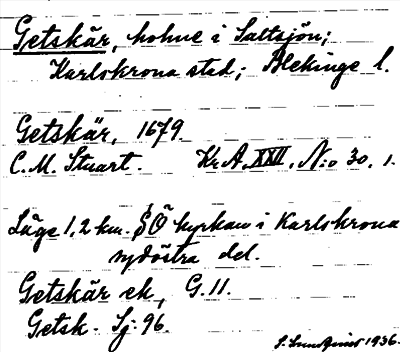 Getskär, holme i Saltsjön;
Karlskrona stad; Blekinge l.
Getskär, 1679.
C.M. Stuart. Kr.A. XXII, N:o 30, 1.
Läge 1,2 km. SO kyrkan i Karlskrona
sydöstra del.
Getskär ek, G.11.
Getsk. Sj. 96.
S. 1936.